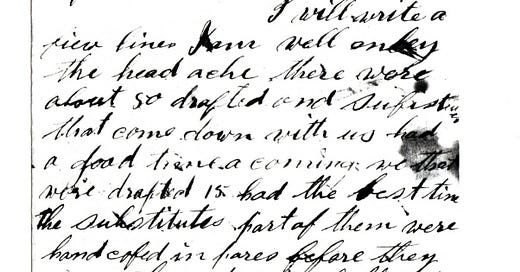 I will write a
few lines I am well onley
the head ache there wore
about 50 drafted and substu
that come down with us had
a good time a coming we that
were drafted is had the best time
the substitutes part of them were
hand cofed in pares before they